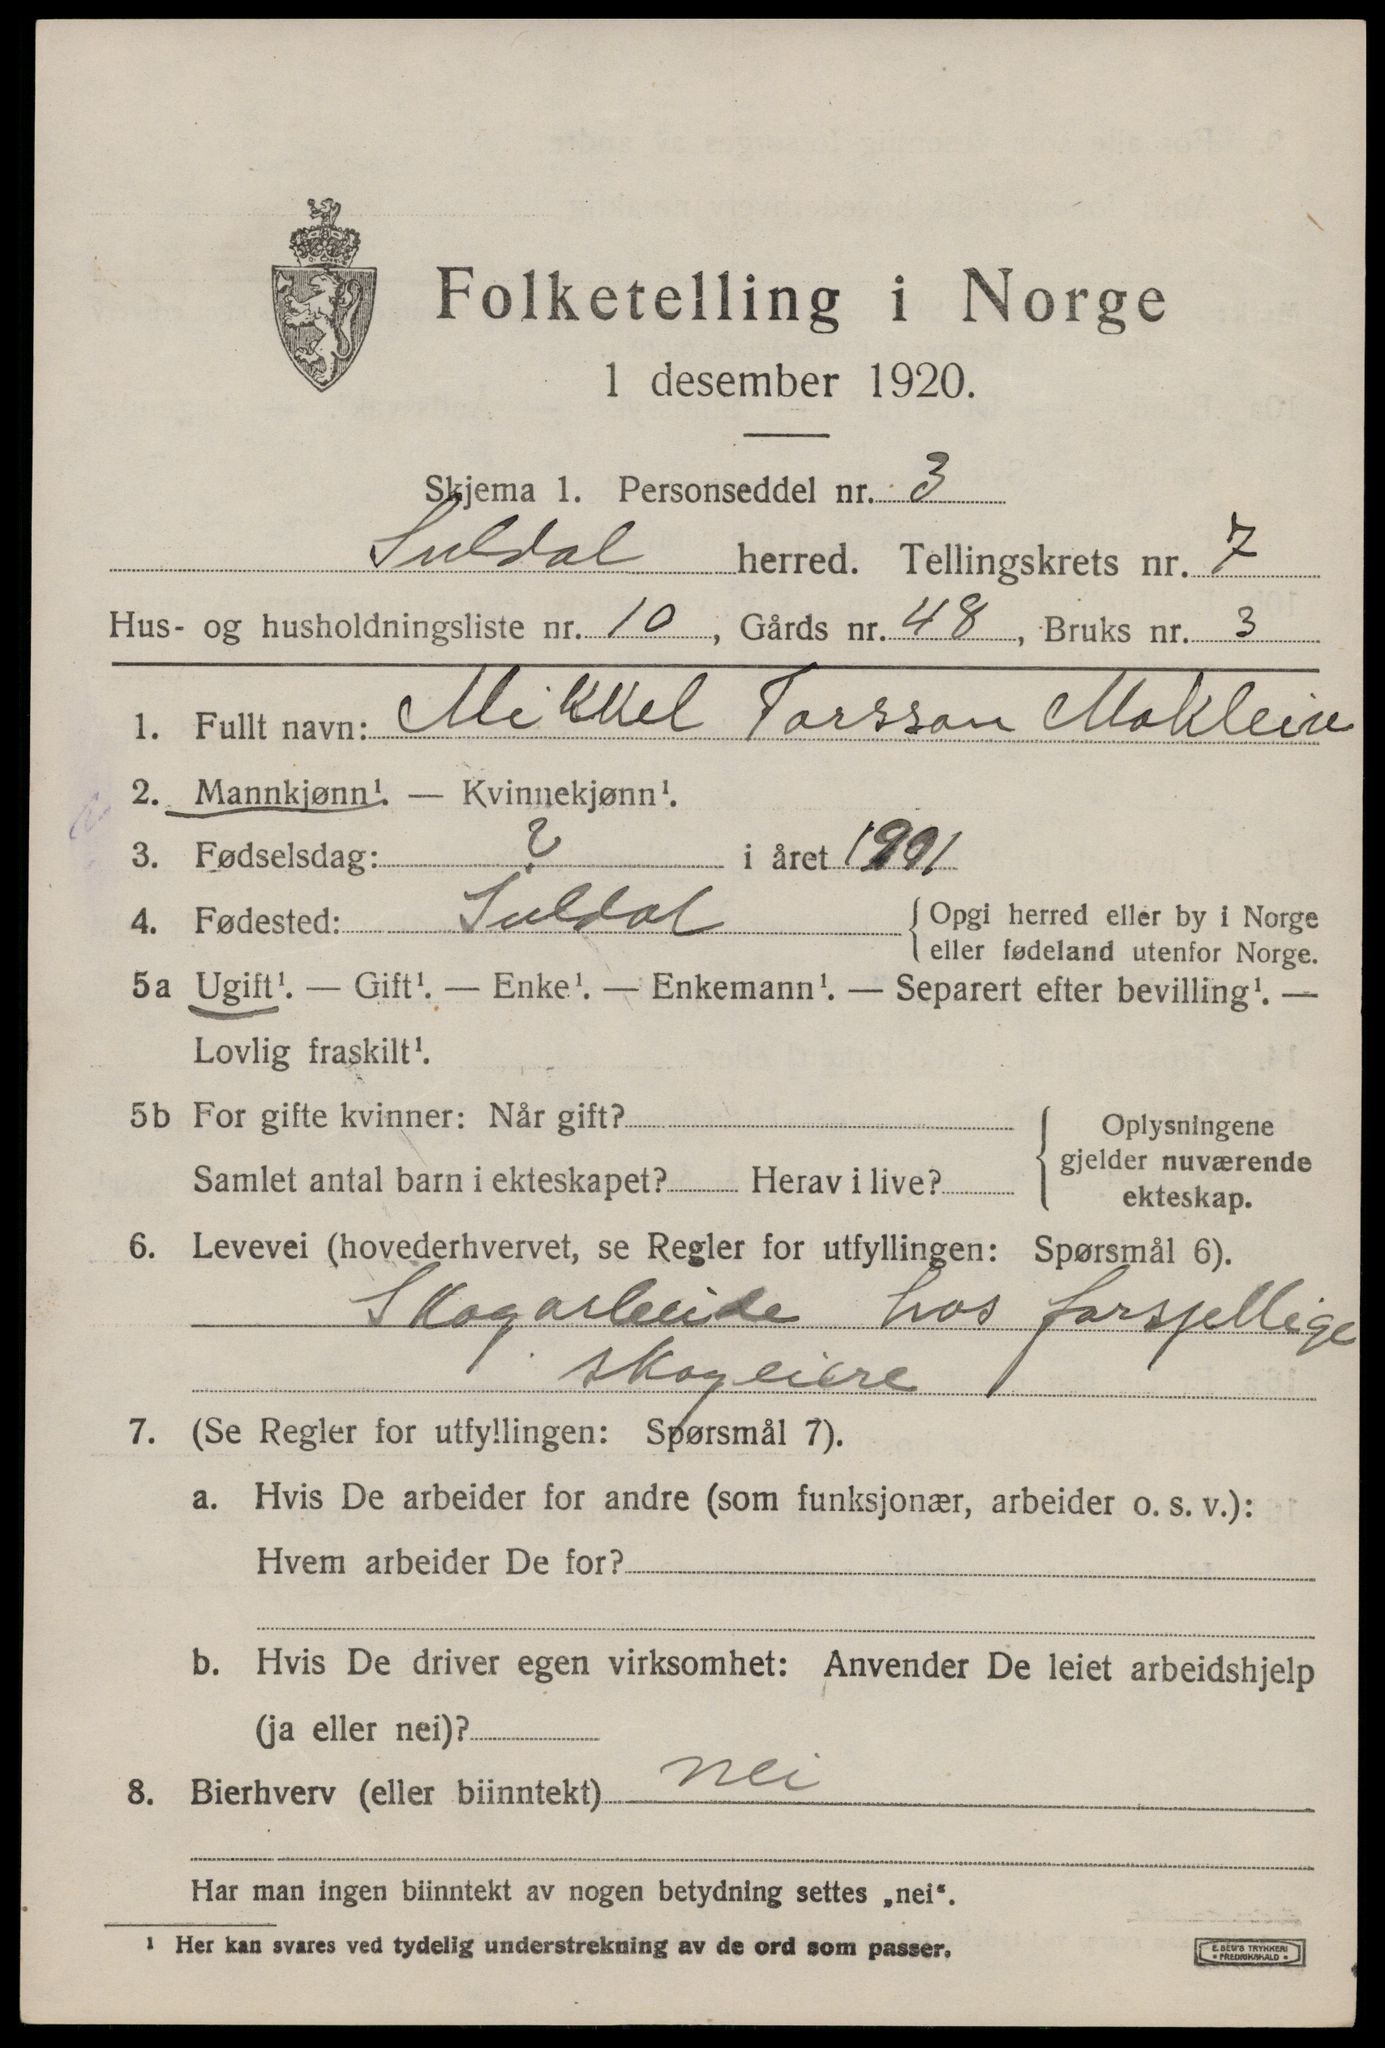 Folketelling i Norge
1 desember 1920.
Skjema 1. Personseddel nr. 3
Suldal herred. Tellingskrets nr. 7
Hus- og husholdningsliste nr. 10, Gårds nr. 48, Bruks nr. 3
1. Fullt navn: Mikkel Torsson Moklein
2. Mannkjønn¹. — Kvinnekjønn¹.
3. Fødselsdag: ? i året
4. Fødested: Suldal {Opgi herred eller by i Norge
eller fødeland utenfor Norge.
5a Ugift¹. — Gift¹. — Enke¹. — Enkemann¹. — Separert efter bevilling¹. —
Lovlig fraskilt¹.
5b For gifte kvinner: Når gift? { Oplysningene
gjelder nuværende
Samlet antal barn i ekteskapet? Herav i live?
ekteskap.
6. Levevei (hovederhvervet, se Regler for utfyllingen: Spørsmål 6).
Skogarbeide hos forsjellige
skogeiere
7. (Se Regler for utfyllingen: Spørsmål 7).
a. Hvis De arbeider for andre (som funksjonær, arbeider o. s. v.):
Hvem arbeider De for?
b. Hvis De driver egen virksomhet: Anvender De leiet arbeidshjelp
(ja eller nei)?
8. Bierhverv (eller biinntekt) nei
Har man ingen biinntekt av nogen betydning settes „nei“.
¹ Her kan svares ved tydelig understrekning av de ord som passer.
E. SEM'S TRYKKERI
• FREDRIKSHALD •